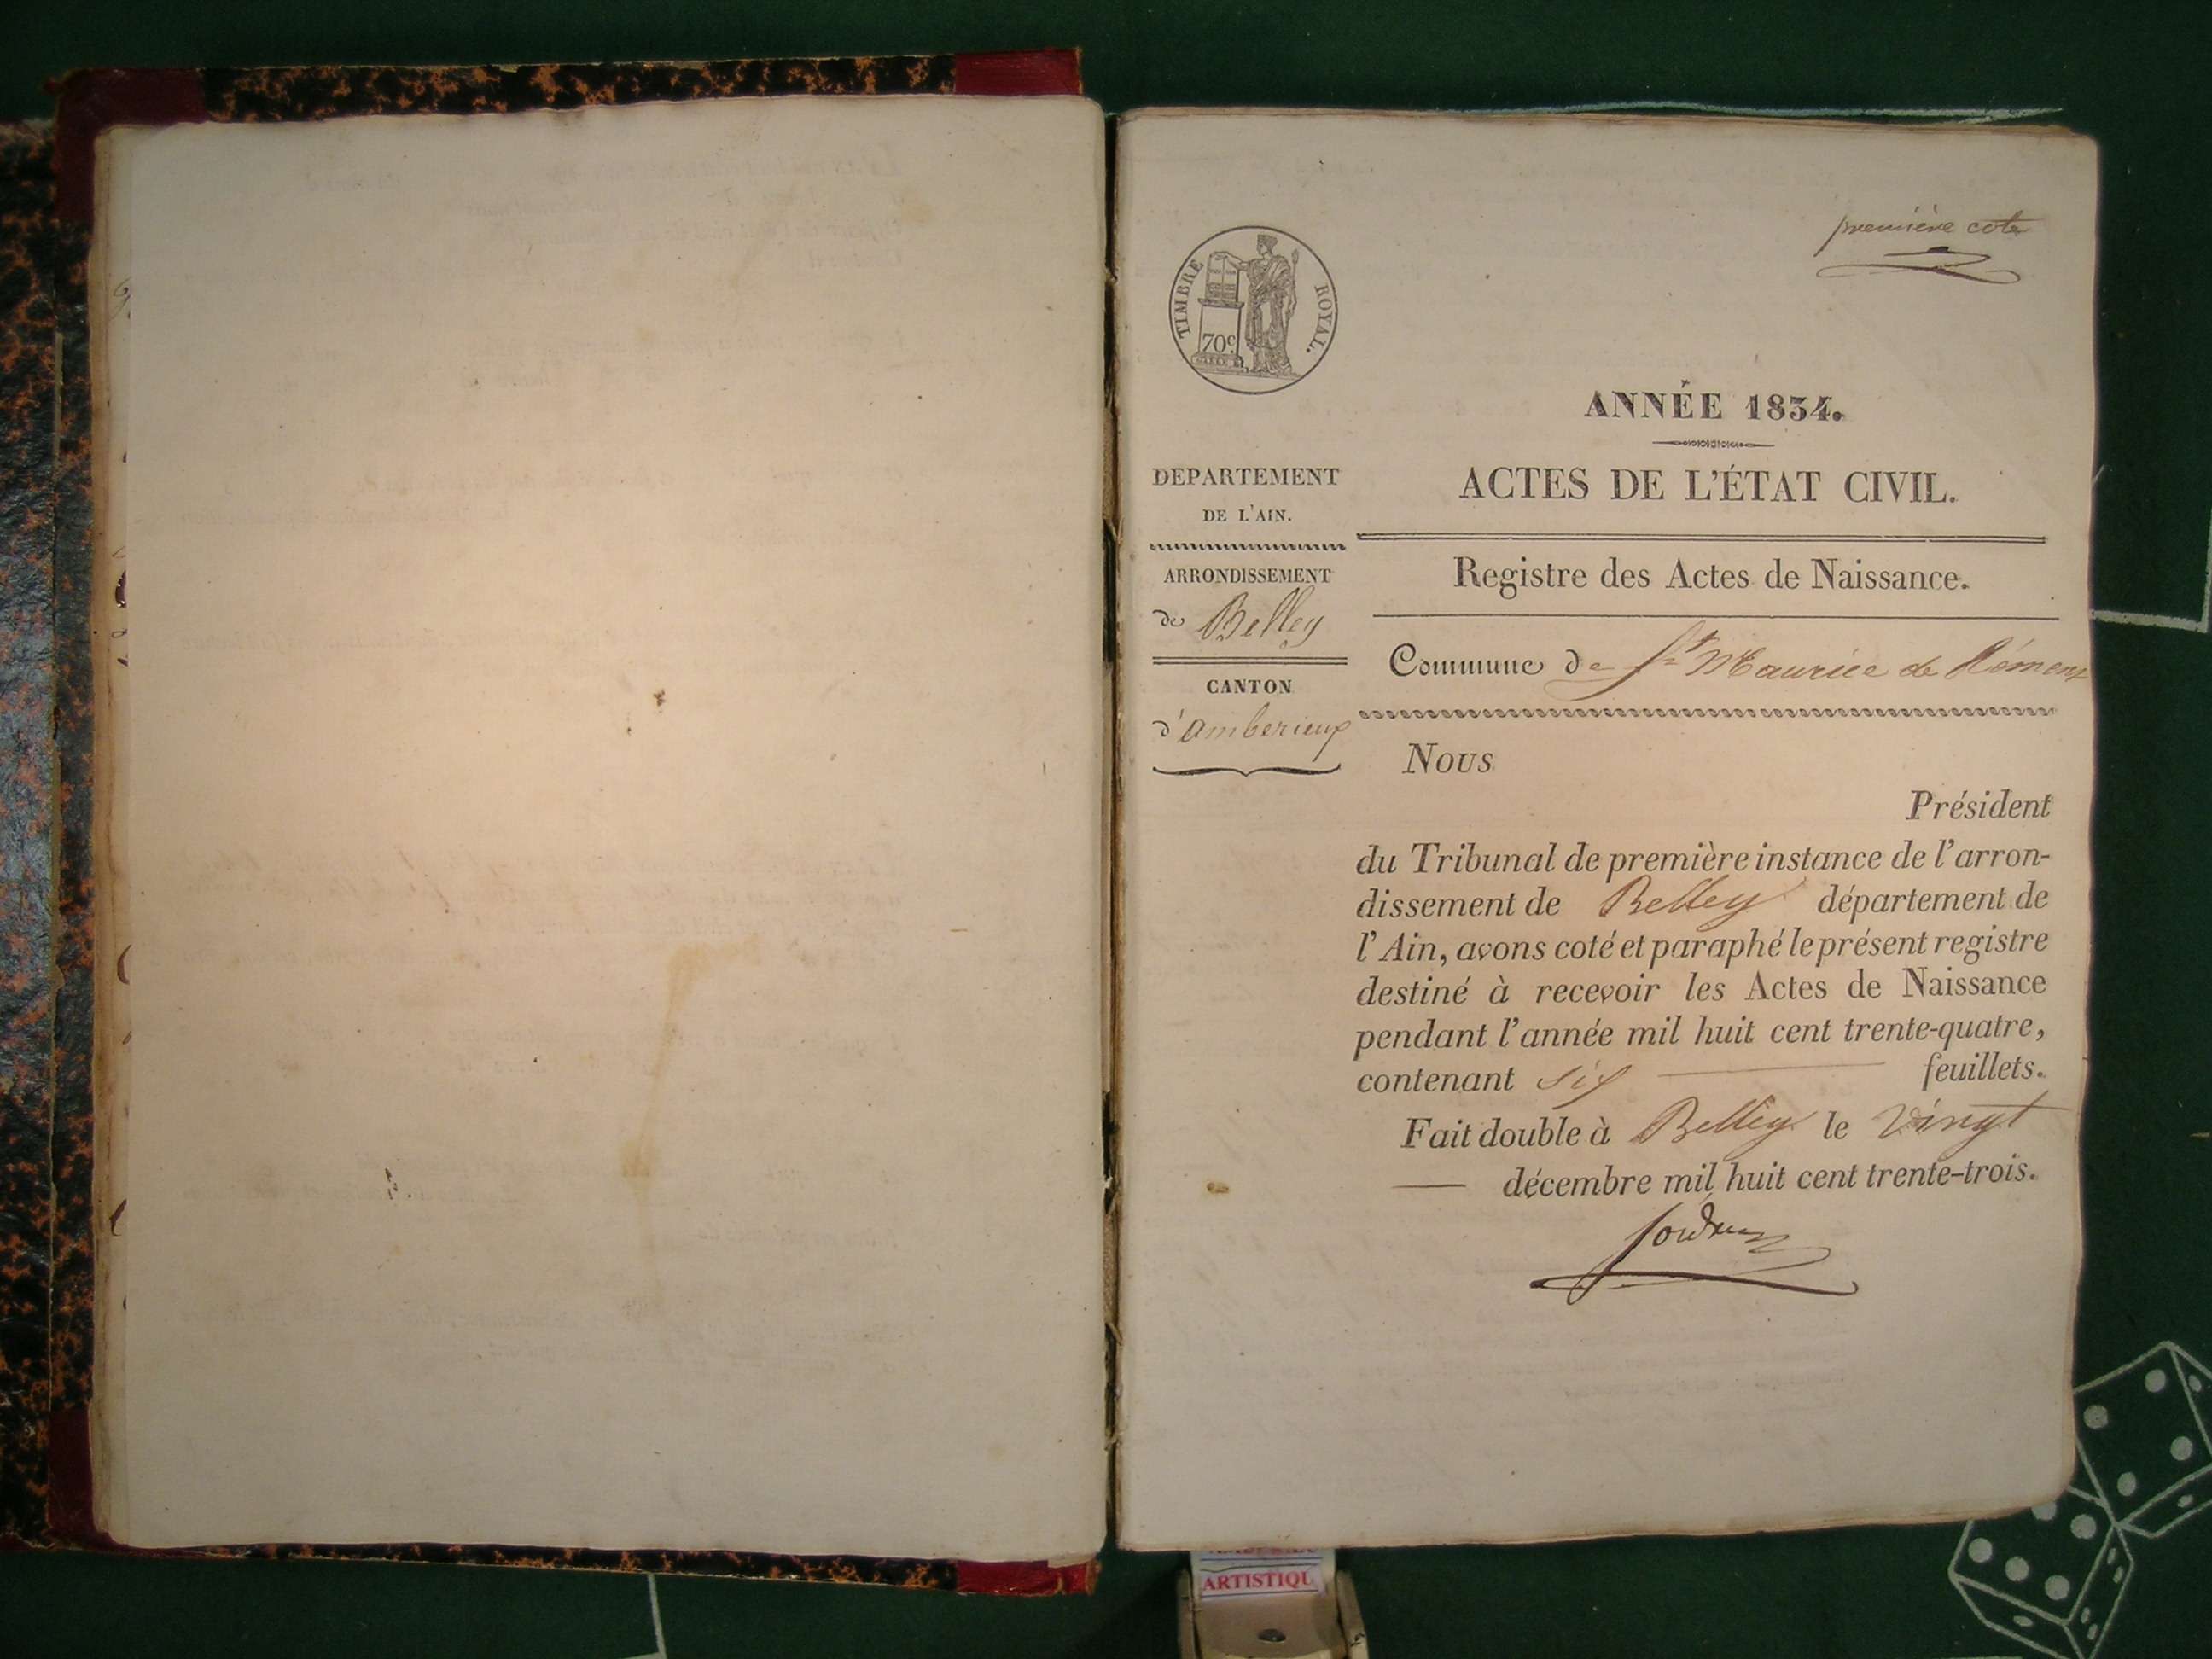 première cote
TIMBRE ROYAL.
70c
ANNÉE 1834.
DEPARTEMENT
DE L'AIN.
ACTES DE L'ÉTAT CIVIL.
ARRONDISSEMENT
de Belley
Registre des Actes de Naissance.
CANTON
d'amberieux
Commune de St Maurice de Rémens
Nous
Président
du Tribunal de première instance de l'arron-
dissement de Belley département de
l'Ain, avons coté et paraphé le présent registre
destiné à recevoir les Actes de Naissance
pendant l'année mil huit cent trente-quatre,
contenant six feuillets.
Fait double à Belley le vingt
décembre mil huit cent trente-trois.
ARTISTIQU